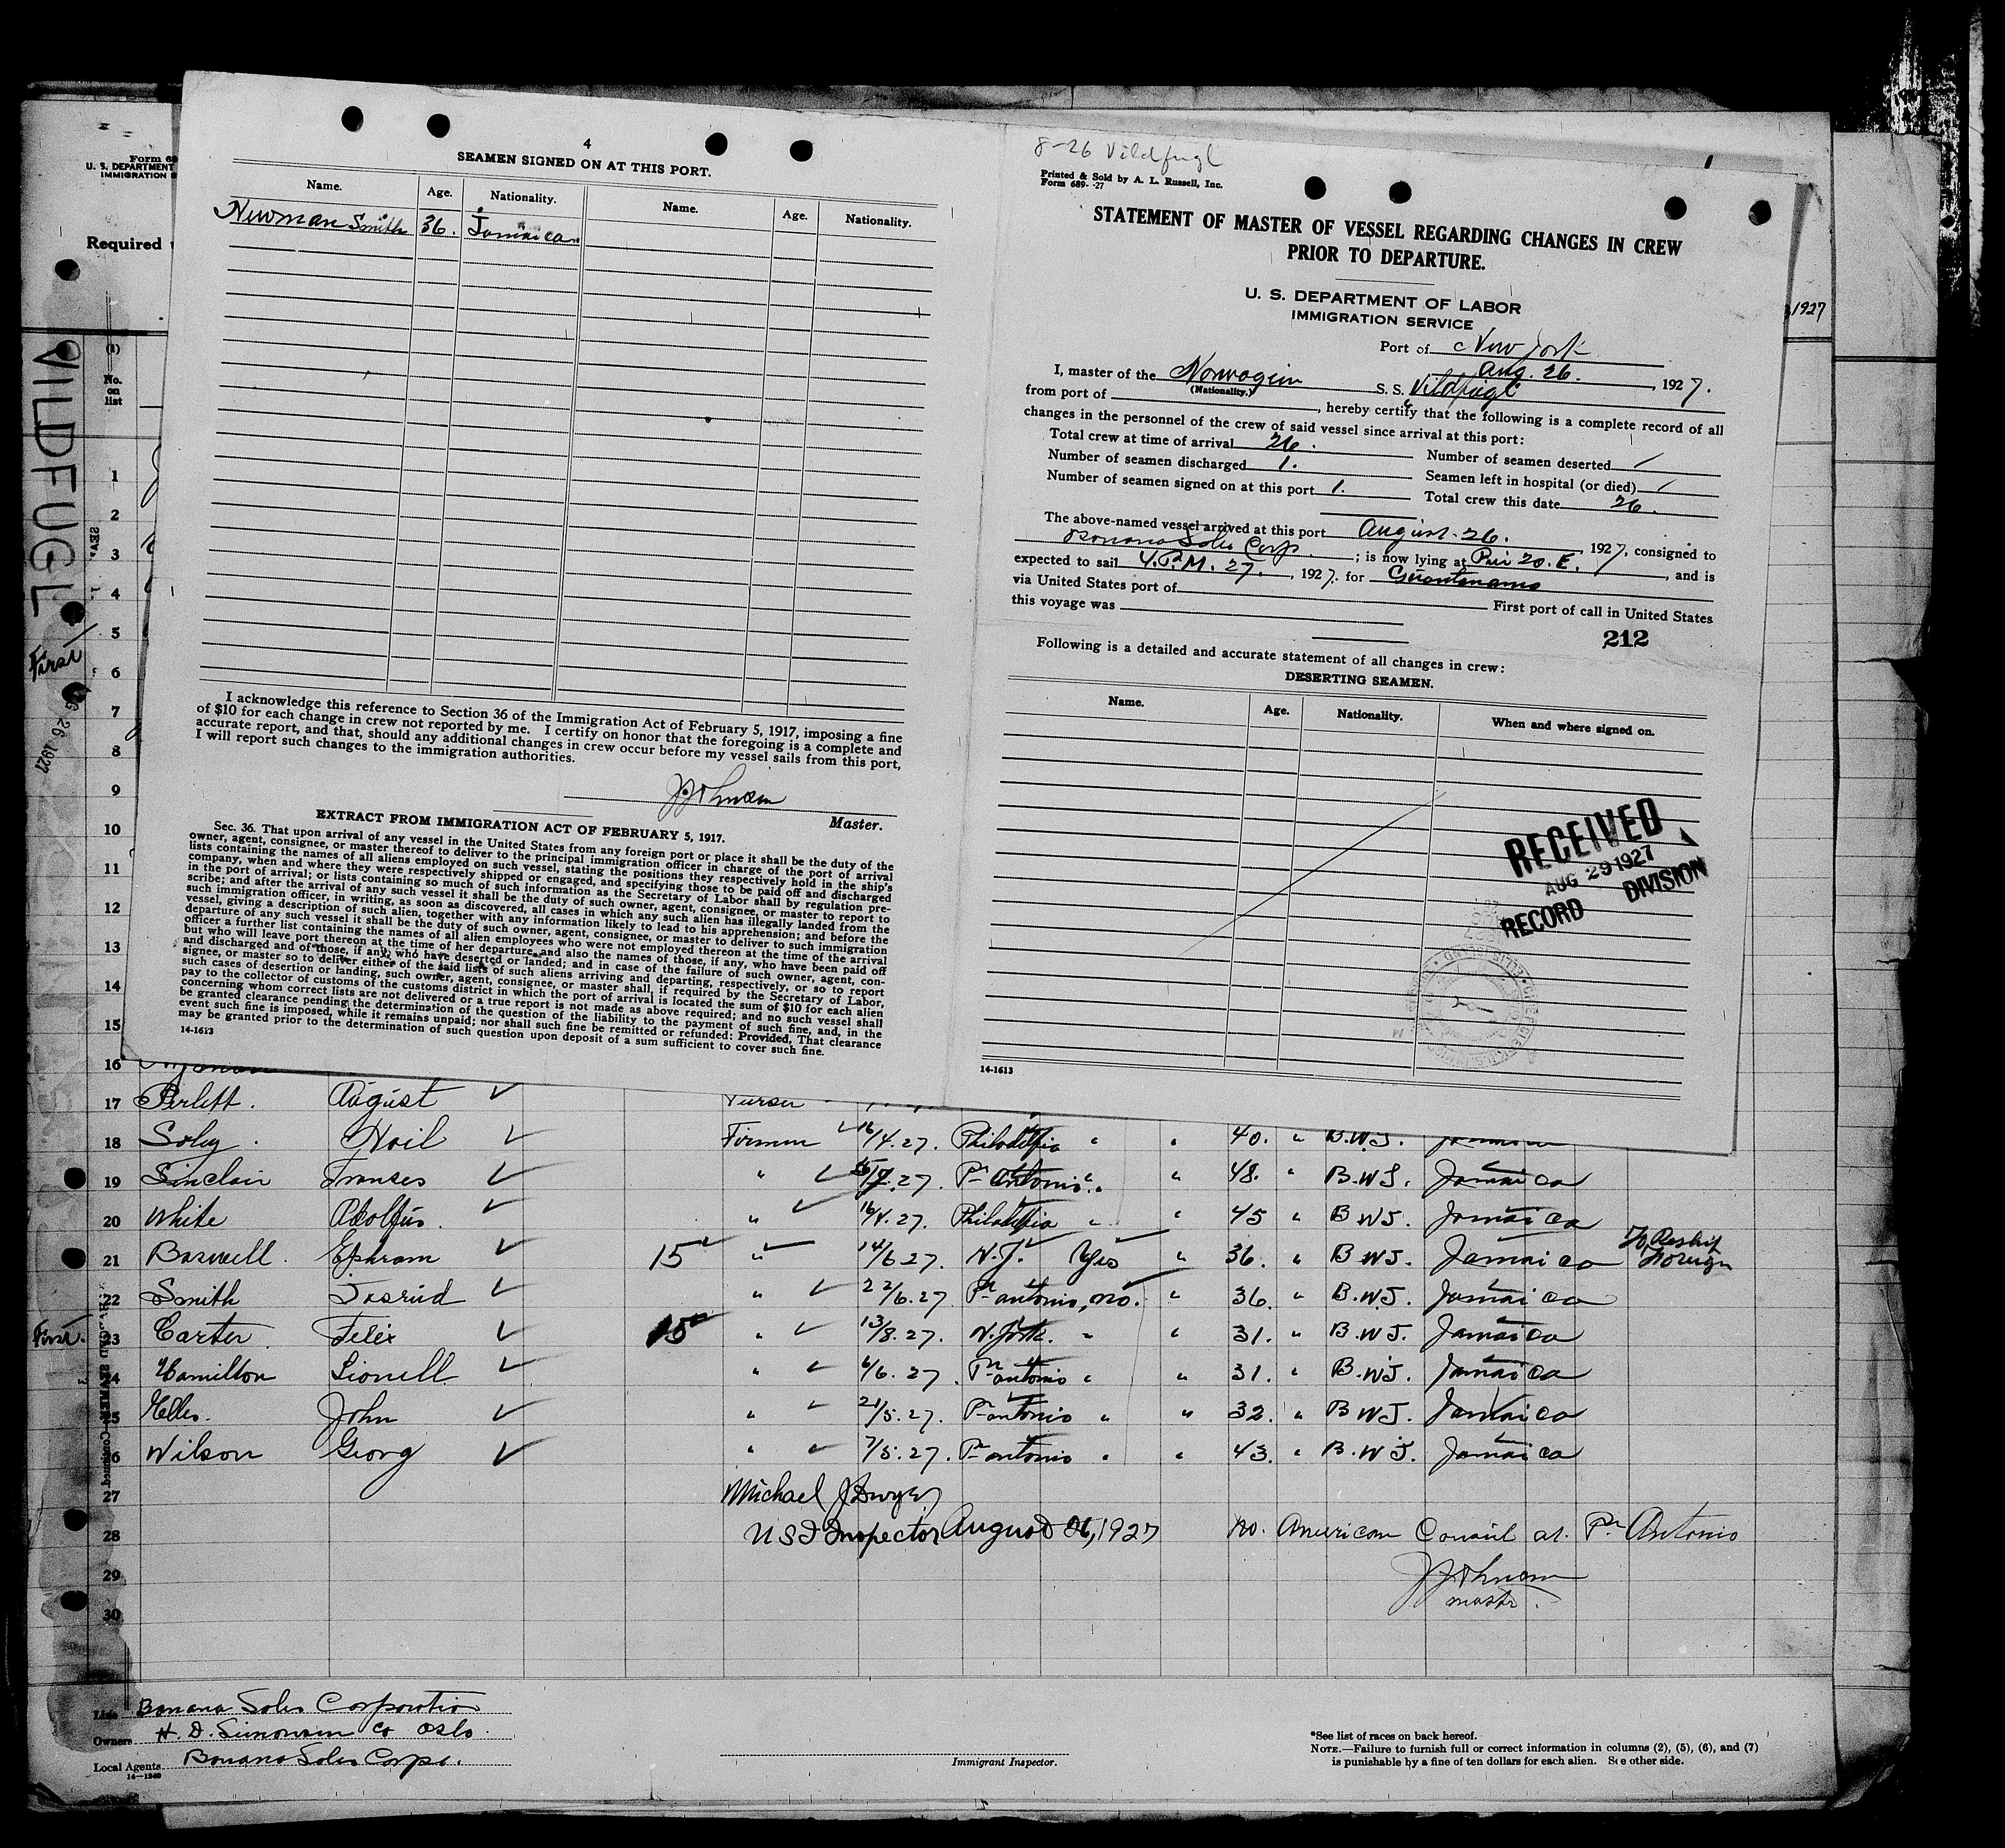 Form 689
U. S. DEPARTMENT
IMMIGRATION
Required
VILDFUGL
First
26 1927
(1)
No.
on
list
1927
4
SEAMEN SIGNED ON AT THIS PORT.
Name. Age. Nationality. Name. Age. Nationality.
Newman Smith 36. Jamaican
I acknowledge this reference to Section 36 of the Immigration Act of February 5, 1917, imposing a fine
of $10 for each change in crew not reported by me. I certify on honor that the foregoing is a complete and
accurate report, and that, should any additional changes in crew occur before my vessel sails from this port,
I will report such changes to the immigration authorities.
Master.
EXTRACT FROM IMMIGRATION ACT OF FEBRUARY 5, 1917.
Sec. 36. That upon arrival of any vessel in the United States from any foreign port or place it shall be the duty of the
owner, agent, consignee, or master thereof to deliver to the principal immigration officer in charge of the port of arrival
lists containing the names of all aliens employed on such vessel, stating the positions they respectively hold in the ship's
company, when and where they were respectively shipped or engaged, and specifying those to be paid off and discharged
in the port of arrival; or lists containing so much of such information as the Secretary of Labor shall by regulation pre-
scribe; and after the arrival of any such vessel it shall be the duty of such owner, agent, consignee, or master to report to
such immigration officer, in writing, as soon as discovered, all cases in which any such alien has illegally landed from the
vessel, giving a description of such alien, together with any information likely to lead to his apprehension; and before the
departure of any such vessel it shall be the duty of such owner, agent, consignee, or master to deliver to such immigration
officer a further list containing the names of all alien employees who were not employed thereon at the time of the arrival
but who will leave port thereon at the time of her departure and also the names of those, if any, who have been paid off
and discharged and of those, if any, who have deserted or landed; and in case of the failure of such owner, agent, con-
signee, or master so to deliver either of the said lists of such aliens arriving and departing, respectively, or so to report
such cases of desertion or landing, such owner, agent, consignee, or master shall, if required by the Secretary of Labor,
pay to the collector of customs of the customs district in which the port of arrival is located the sum of $10 for each alien
concerning whom correct lists are not delivered or a true report is not made as above required; and no such vessel shall
be granted clearance pending the determination of the question of the liability to the payment of such fine, and, in the
event such fine is imposed, while it remains unpaid; nor shall such fine be remitted or refunded: Provided, That clearance
may be granted prior to the determination of such question upon deposit of a sum sufficient to cover such fine.
14-1613
8-26 Vildfugl
Printed & Sold by A. L. Russell, Inc.
Form 689- -27
STATEMENT OF MASTER OF VESSEL REGARDING CHANGES IN CREW
PRIOR TO DEPARTURE.
U. S. DEPARTMENT OF LABOR
IMMIGRATION SERVICE
Port of New York
Aug. 26. , 1927.
I, master of the Norwegian S. S. Vildfugl
(Nationality.)
from port of , hereby certify that the following is a complete record of all
changes in the personnel of the crew of said vessel since arrival at this port:
Total crew at time of arrival 26. Number of seamen deserted /
Number of seamen discharged 1. Seamen left in hospital (or died) /
Number of seamen signed on at this port 1. Total crew this date 26.
The above-named vessel arrived at this port August 26. , 1927, consigned to
Banana Sales Corp. ; is now lying at Pier 20. E. , and is
expected to sail 4. P.M. 27. , 1927. for Guantanamo
via United States port of
First port of call in United States
this voyage was
212
Following is a detailed and accurate statement of all changes in crew:
DESERTING SEAMEN.
Name. Age. Nationality. When and where signed on.
RECEIVED
AUG 29 1927
RECORD DIVISION
14-1613
1
2
3
4
5
6
7
8
9
10
11
12
13
14
15
16
17 Perlett. August Purser
18 Soley. Firmen 16/4.27. Philadelfia " " 40. " B.W.I. Jamaica
19 Sinclair Franses " /27. Pr Antonio " " 48. " B.W.I. Jamaica
20 White Adolfus. " 16/4.27. Philadelfia " " 45 " B.W.I. Jamaica
21 Barwell. Ephram 15 " 14/6 27. N.J. Yes " 36. " B.W.I. Jamaica To Reship Foreign
22 Smith " 22/6.27. Pr antonio, no. " 36. " B.W.I. Jamaica
First. 23 Carter Felix 15 " 13/8.27. N. York. " " 31. " B.W.I. Jamaica
24 Hamilton Lionell " 6/6.27. Pr antonio " " 31. " B.W.I. Jamaica
25 Elles. John " 21/5.27. Pr antonio " " 32. " B.W.I. Jamaica
26 Wilson Georg " 7/5.27. Pr antonio " " 43. " B.W.I. Jamaica
27 Michael J Dwyer
28 USI Inspector August 26, 1927 no. American Consul at. Pr Antonio
29
master.
30
Line Banana Sales Corporation
Owners H. D. Simonsen Co Oslo.
Local Agents Banana Sales Corps.
14-1240
Immigrant Inspector.
*See list of races on back hereof.
NOTE.—Failure to furnish full or correct information in columns (2), (5), (6), and (7)
is punishable by a fine of ten dollars for each alien. See other side.